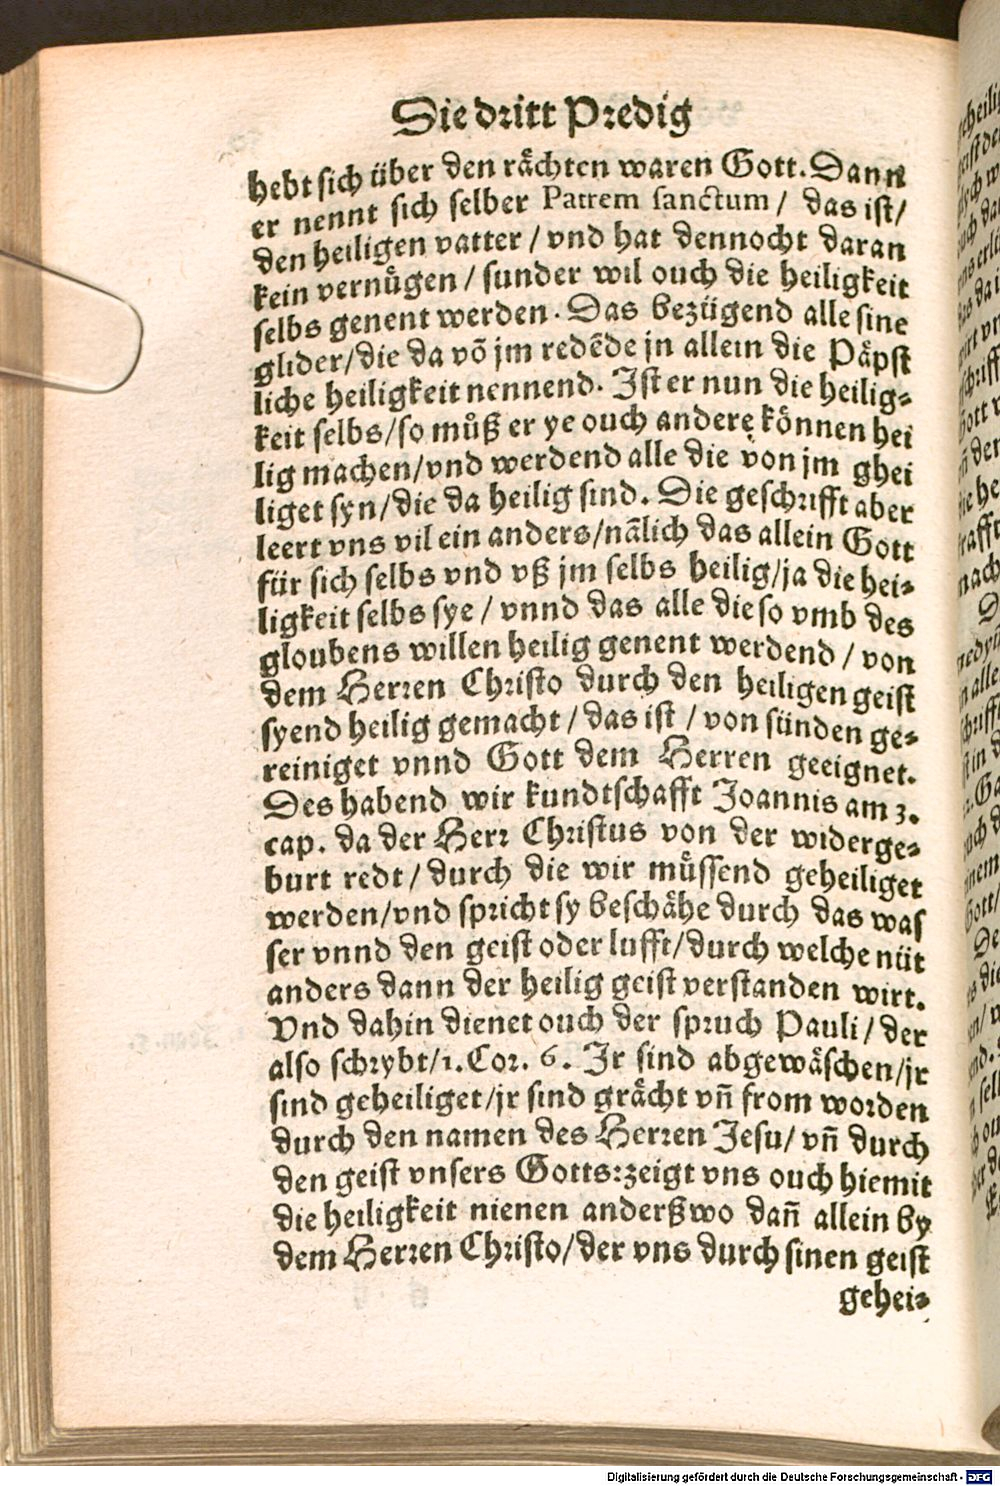 Die dritt Predig
hebt sich über den rächten waren Gott. Dann
er nennt sich selber Patrem sanctum / das ist/
den heiligen vatter / vnd hat dennocht daran
kein vernuͤgen / sunder wil ouch die heiligkeit
selbs genent werden. Das bezügend alle sine
glider/die da võ jm redẽde jn allein die Päpst
liche heiligkeit nennend. Ist er nun die heilig⸗
keit selbs/so muͦß er ye ouch andere können hei
lig machen/vnd werdend alle die von jm ghei
liget syn/die da heilig sind. Die geschrifft aber
leert vns vil ein anders/nãlich das allein Gott
für sich selbs vnd vß jm selbs heilig/ja die hei⸗
ligkeit selbs sye / vnnd das alle die so vmb des
gloubens willen heilig genent werdend / von
dem Herren Christo durch den heiligen geist
syend heilig gemacht / das ist / von sünden ge⸗
reiniget vnnd Gott dem Herren geeignet.
Des habend wir kundtschafft Joannis am 3.
cap. da der Herr Christus von der widerge⸗
burt redt / durch die wir müssend geheiliget
werden/vnd spricht sy beschähe durch das was
ser vnnd den geist oder lufft/durch welche nüt
anders dann der heilig geist verstanden wirt.
Vnd dahin dienet ouch der spruch Pauli / der
also schrybt/1. Cor. 6. Jr sind abgewäschen/jr
sind geheiliget/jr sind grächt vñ from worden
durch den namen des Herren Jesu/ vñ durch
den geist vnsers Gotts:zeigt vns ouch hiemit
die heiligkeit nienen anderßwo dañ allein by
dem Herren Christo/der vns durch sinen geist
gehei⸗
Digitalisierung gefördert durch die Deutsche Forschungsgemeinschaft - DFG